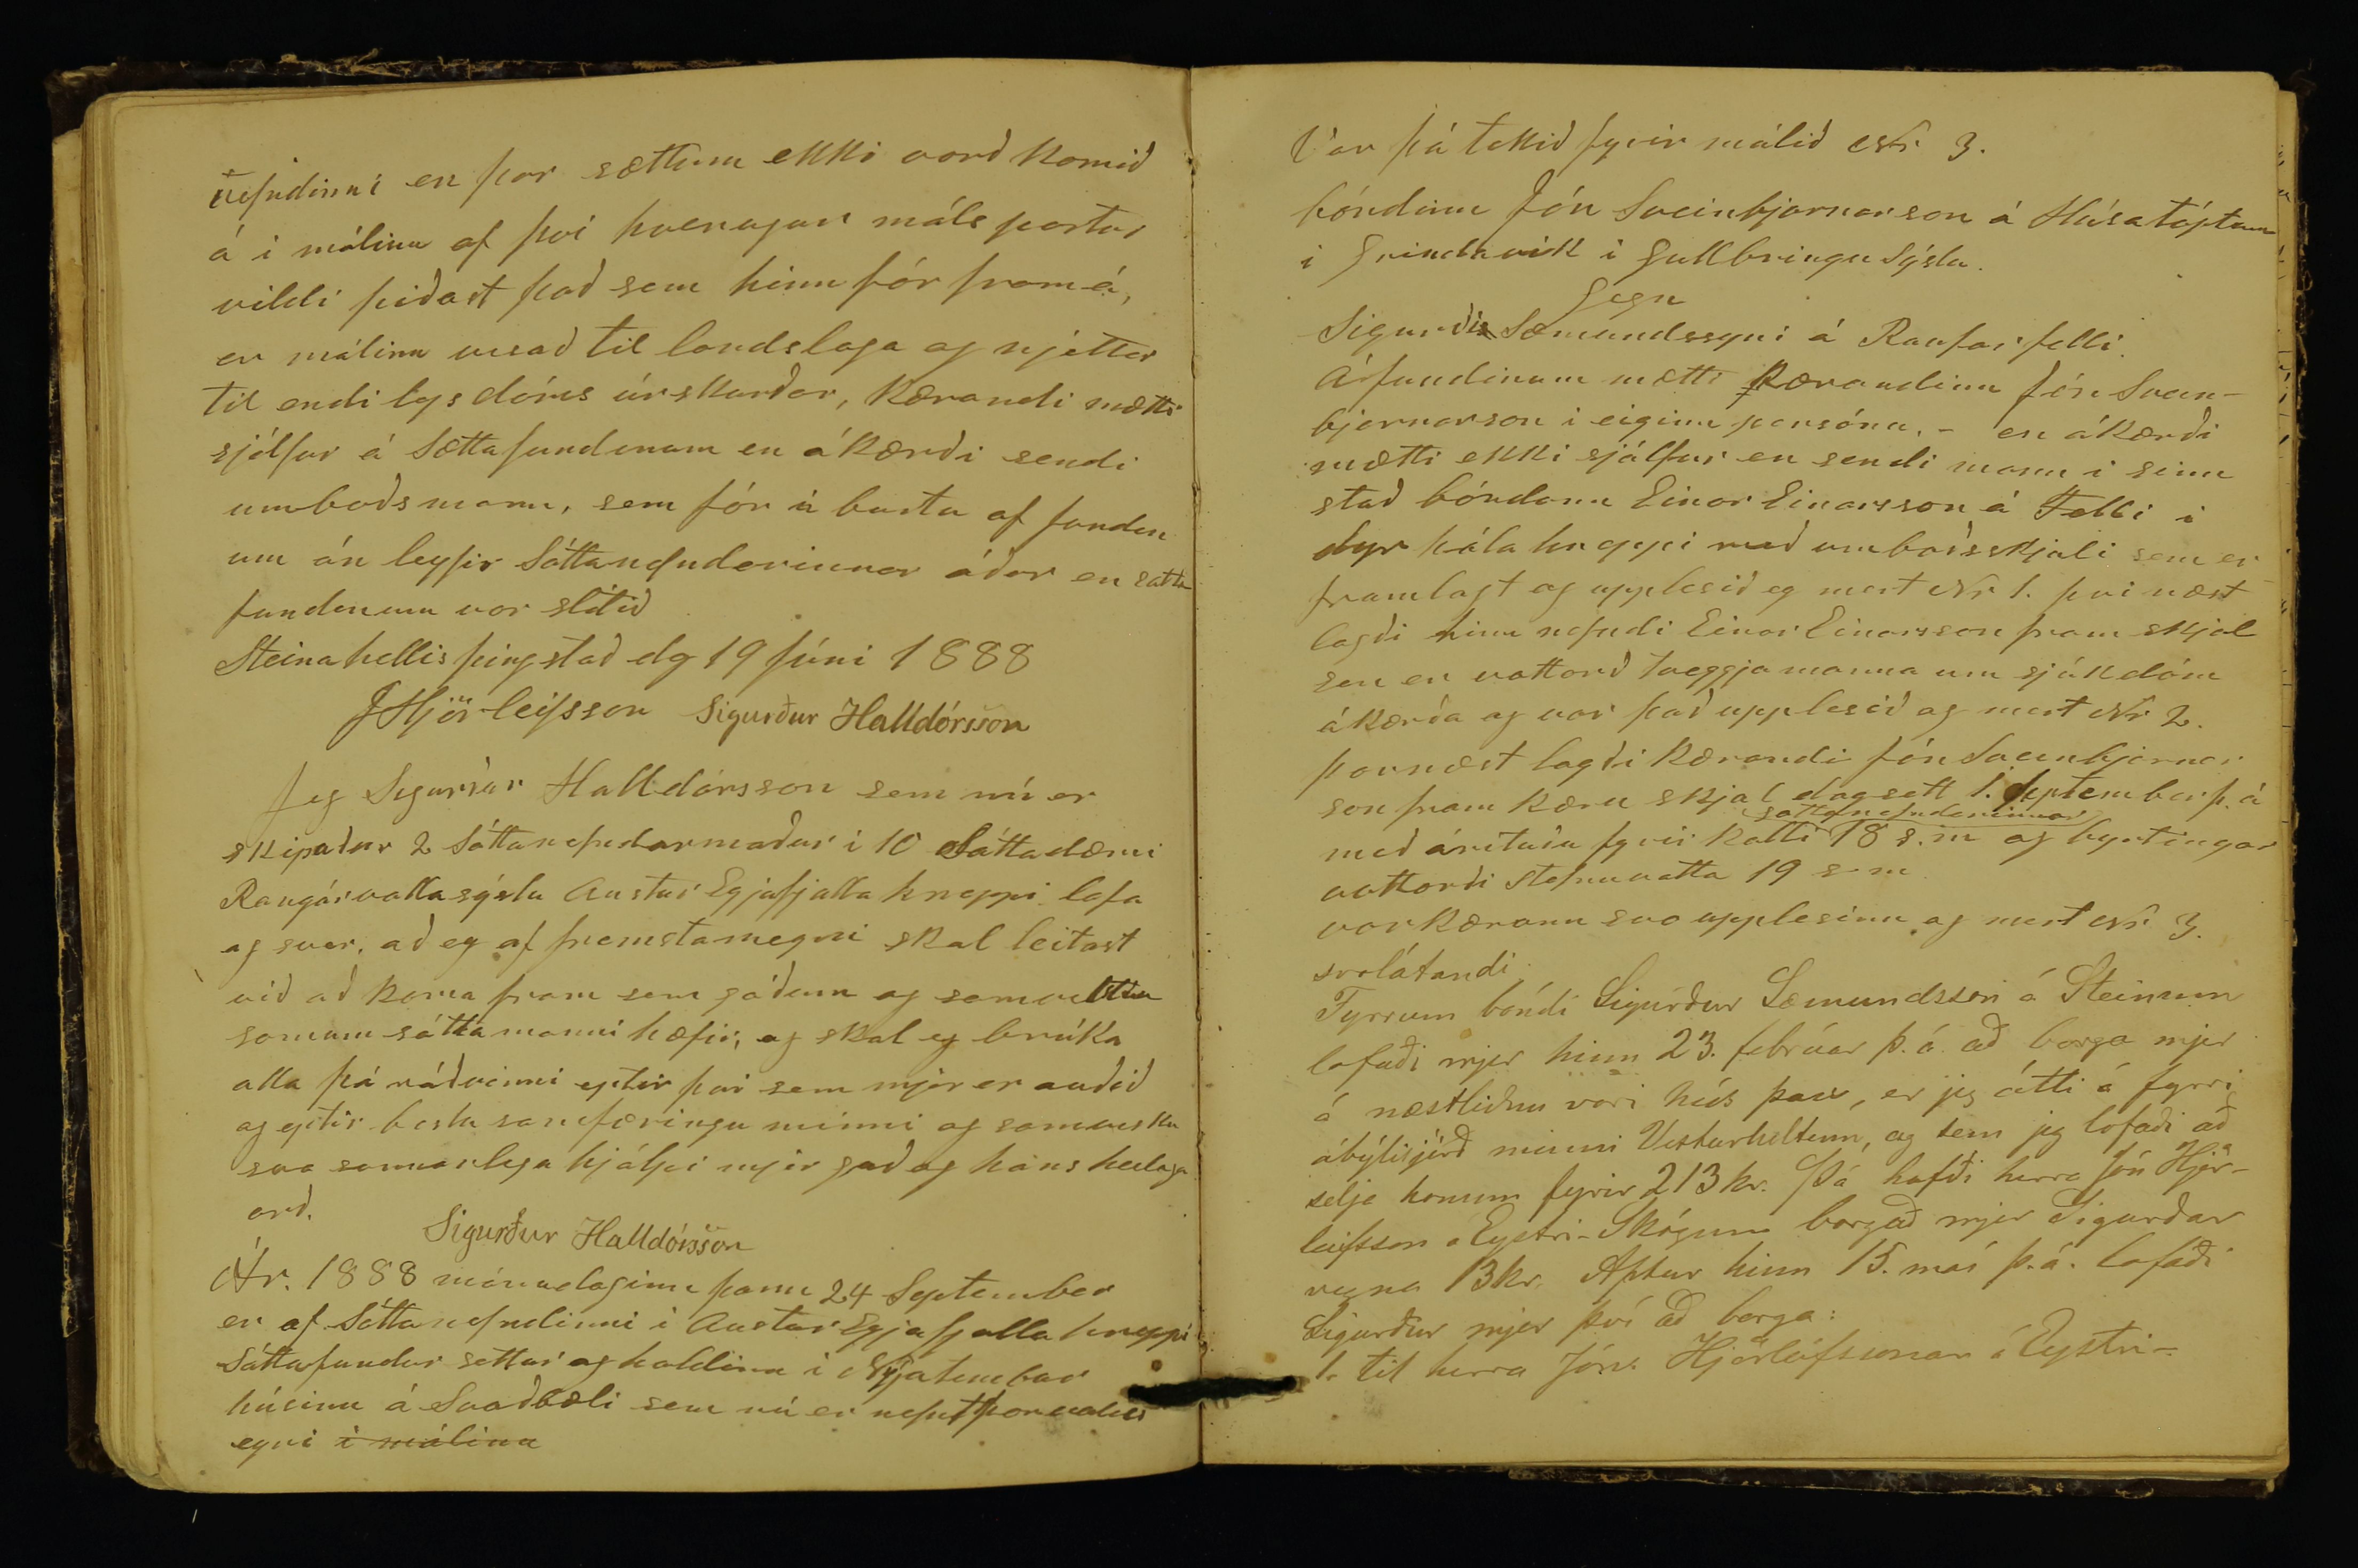 nefndinni en þar sættum ekki varð komið
á i málinu af því hverugur málspartur
vildi þiðast það sem hinn fór fram á,
er málinu vísað til landslaga og rjettar
til endilegs dóms úrskurðar, Kærandi mætti
sjálfur á Sættafundinum en ákærði sendi
umboðsmann, sem fór í burtu af fundin
um án leyfis Sáttanefndarinnar áður en sátta
fundinum var slitið
Steinahellis þingstað dg 19 júni 1888
JHjörleifsson Sigurður Halldórsson
Jeg Sigurður Halldórsson sem nú er
skipaður 2 Sáttanefndarmaður i 10 Sáttadæmi
Rangárvallasýslu Austur Eyjafjalla hreppi lofa
og sver, að eg af fremsta megni skal leitast
við að koma fram sem góðum og samvittsku
sömum sáttamanni hæfir, og skal eg brúka
alla þá ráðvinni eptir því sem mjer er auðið
og eptir bestu sanfæringu minni og samvisku
svo sannarlega hjálpi mjer guð og hans heilaga
orð.
Sigurður Halldórsson
Ár. 1888 mánudaginn þann 24 September
er af Sáttanefndinni i Austur Eyjafjalla hreppi
Sáttafundur settur og haldinn i Nýja timbur
húsinu á Svaðbæli sem nú er nefnt Þorvalds
eyri i málinu
Var þá tekið fyrir málið Nr 3.
bóndinn Jón Sveinbjarnarson á Húsatóptum
i Grindavik i Gullbringu Sýslu.
Gegn
Sigurði Sæmundssyni á Raufarfelli.
Á fundinum mætti Kærandinn Jón Svein-
bjarnarson i eiginn persónu, - en ákærði
mætti ekki sjálfur en sendi mann i sinn
stað bóndann Einar Einarsson á Felli i
dyrhóla hreppi með umboðsskjali sem er
framlagt og upplesið og mert Nr 1. því næst
lagði hinn nefndi Einar Einarsson fram skjal
sen er vottorð tveggja manna um sjúkdóm
ákærða og var það upplesið og mert Nr 2.
þarnæst lagði Kærandi Jón Sveinbjarnar
son fram kæru skjal dagsett 1. September þ. á
sáttanefndarinnar
með árituðu fyrir kalli 18 s. m og byrtingar
vottorði stefnuvotta 19 s m
var kærann svo upplesinn og mert Nr 3.
svolátandi
Fyrrum bóndi Sigurður Sæmundsson á Steinum
lofaði mjer hinn 23. febrúar þ. á. að borga mjer
á næstliðnu vori hús þau, er jeg átti á fyrri
ábýlisjörð minni Vesturholtum, og sem jeg lofaði að
selja honum fyrir 213 kr. Þá hafði herra Jón Hjör-
leifsson á Eystri-Skógum borgað mjer Sigurðar
vegna 13 kr. Aptur hinn 15. maí þ. á. lofaði
Sigurður mjer því að borga:
1. til herra Jóns Hjörleifssonar á Eystri-